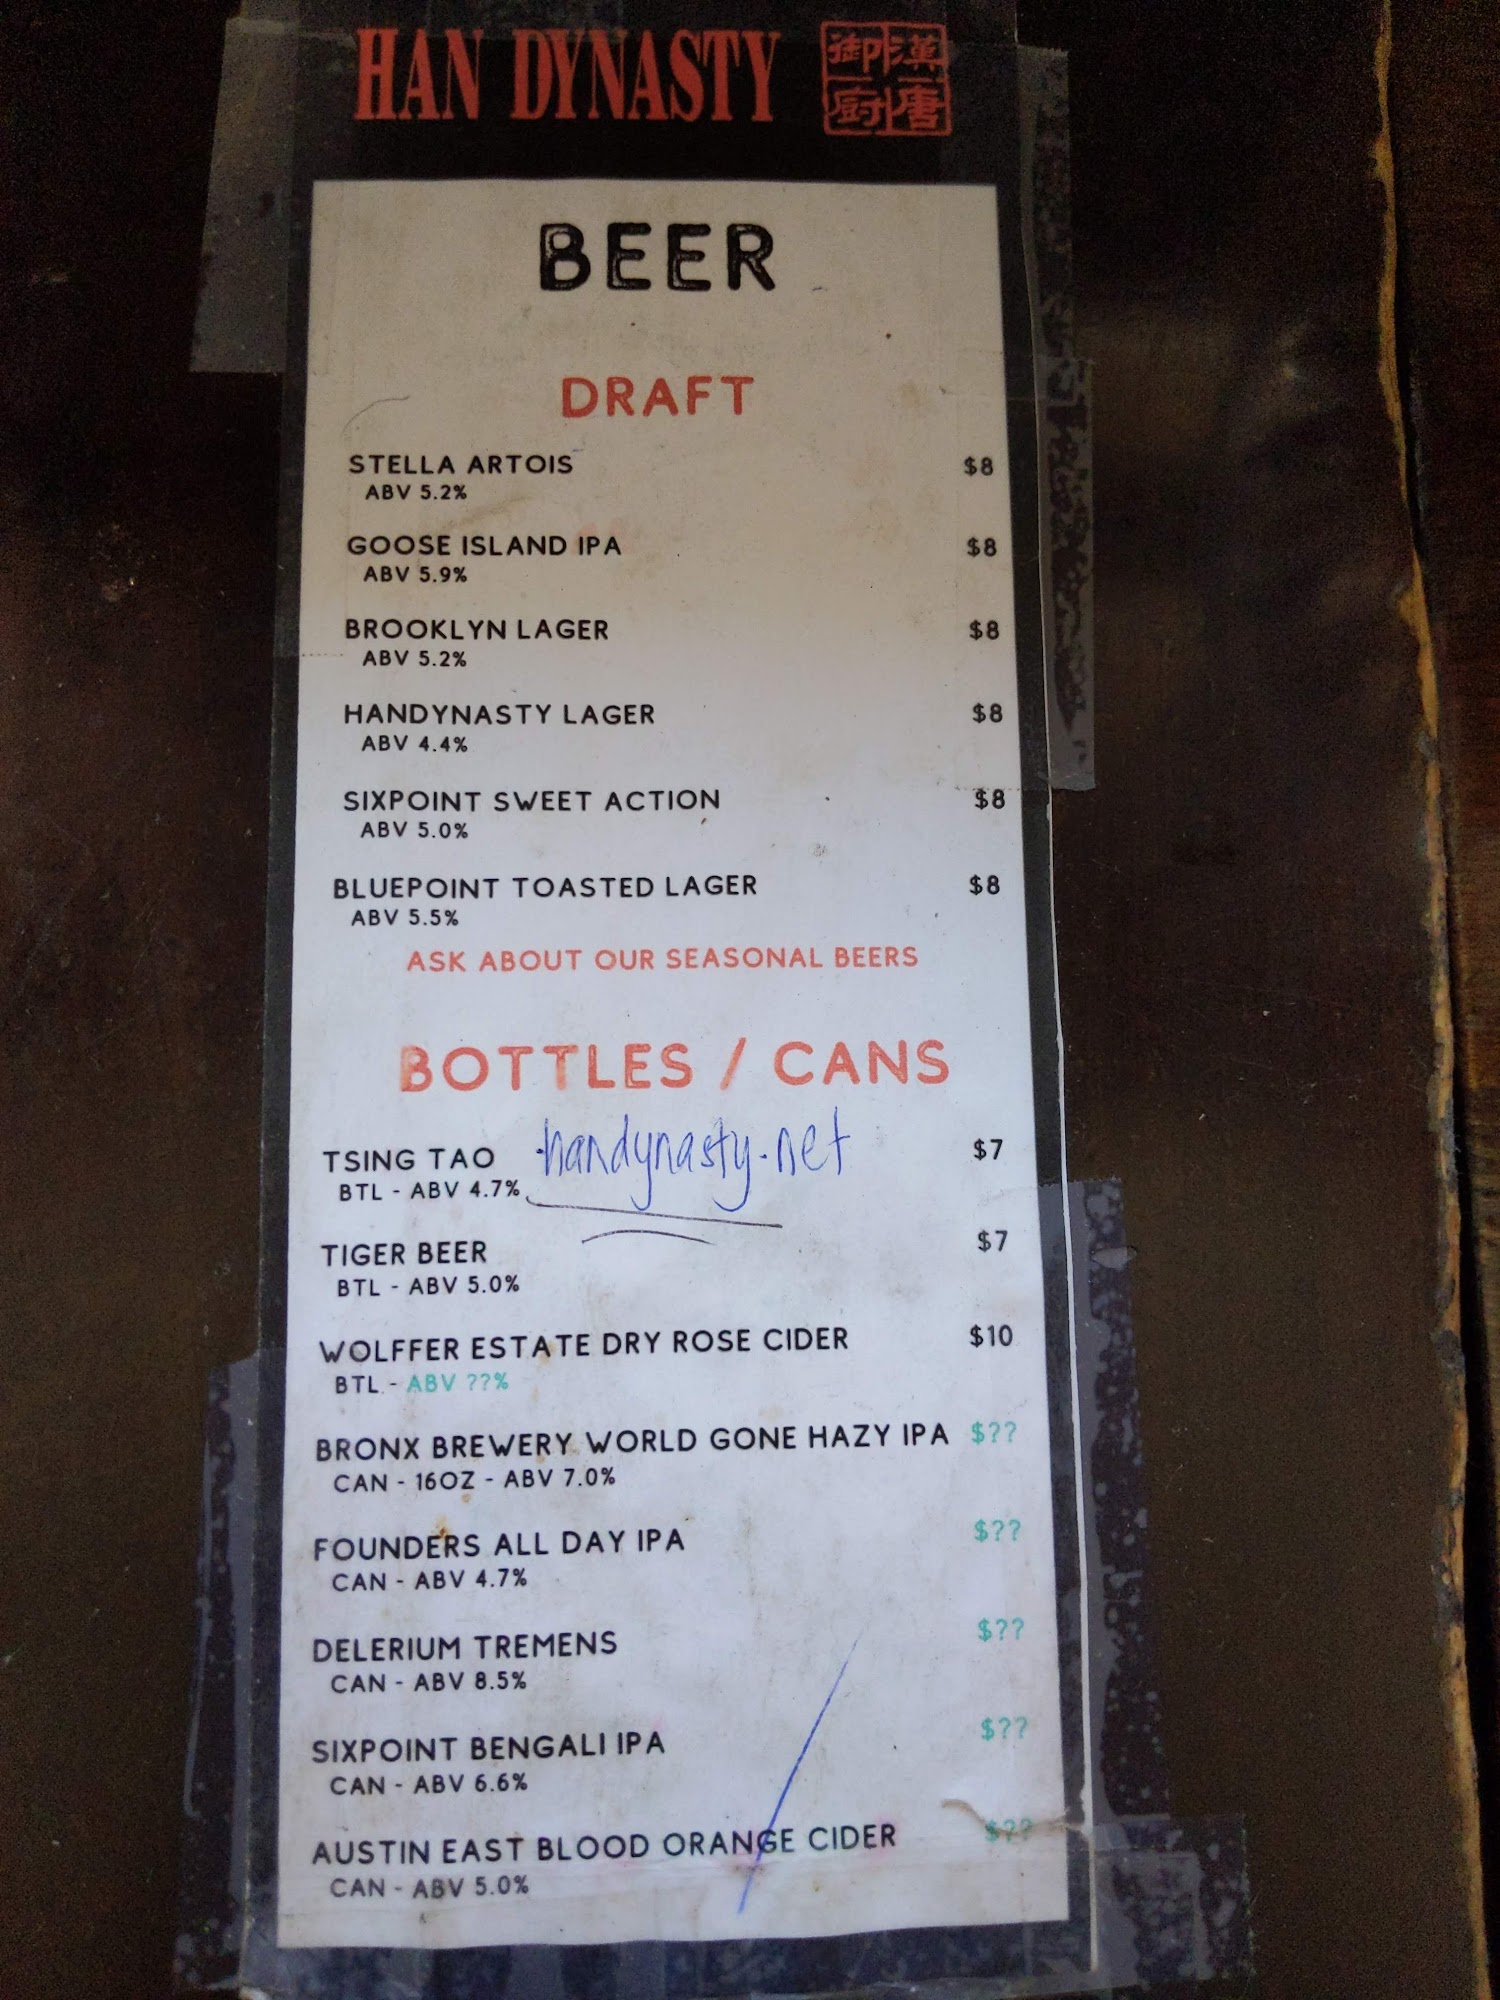 HAN DYNASTY
御漢
廚唐
BEER
DRAFT
STELLA ARTOIS $8
ABV 5.2%
GOOSE ISLAND IPA $8
ABV 5.9%
BROOKLYN LAGER $8
ABV 5.2%
HANDYNASTY LAGER $8
ABV 4.4%
SIXPOINT SWEET ACTION $8
ABV 5.0%
BLUEPOINT TOASTED LAGER $8
ABV 5.5%
ASK ABOUT OUR SEASONAL BEERS
BOTTLES / CANS
TSING TAO $7
BTL - ABV 4.7%
handynasty.net
TIGER BEER $7
BTL - ABV 5.0%
WOLFFER ESTATE DRY ROSE CIDER $10
BTL - ABV ??%
BRONX BREWERY WORLD GONE HAZY IPA $??
CAN - 16OZ - ABV 7.0%
FOUNDERS ALL DAY IPA $??
CAN - ABV 4.7%
DELERIUM TREMENS $??
CAN - ABV 8.5%
SIXPOINT BENGALI IPA $??
CAN - ABV 6.6%
AUSTIN EAST BLOOD ORANGE CIDER $??
CAN - ABV 5.0%